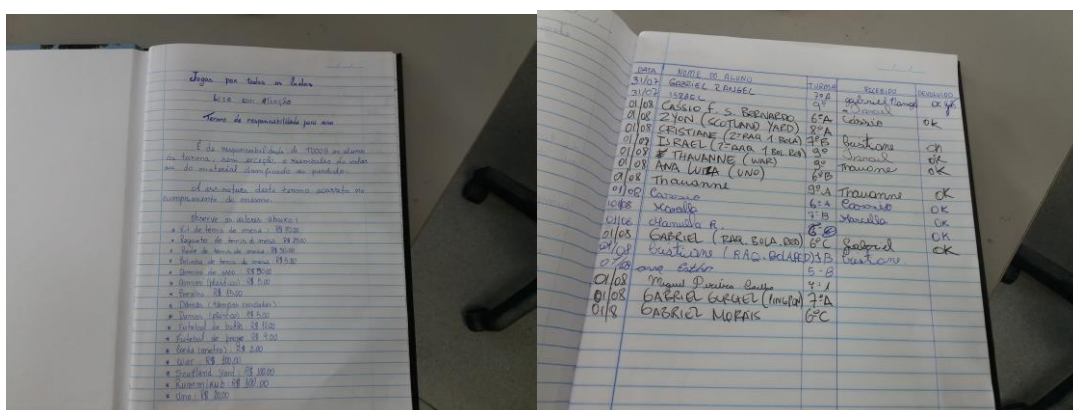 Jogos por todos os lados
Leia com atenção
Termo de responsabilidade para uso
É de responsabilidade de TODOS os alunos
da turma, sem exceção o reembolso do valor
ou do material danificado ou perdido.
A assinatura deste termo acarreta no
cumprimento do mesmo.
Observe os valores abaixo:
* Kit de tenis de mesa: R$
* Raquete de tenis de mesa R$
* Rede de tenis de mesa R$
* Bolinha de tenis de mesa R$
* Domino de osso R$
* Domino (plástico) R$ 5,00
* Baralho R$ 15,00
* Damas (tampas recicladas)
* Damas (plástico) R$ 5,00
* Futebol de botão R$
* Futebol de prego R$
* Corda (metro) R$ 2,00
* War: R$ 100,00
* Scotland Yard: R$ 100,00
* Rummikub: R$ 100,00
* Uno: R$ 20,00
DATA NOME DO ALUNO TURMA RECEBIDO DEVOLVIDO
31/07 GABRIEL RANGEL 7ºA Gabriel Rangel ok
31/07 ISRAEL 9º Israel
01/08 CASSIO F. S. BERNARDO 6ºA Cassio ok
01/08 ZYON (SCOTLAND YARD) 8ºA
01/08 CRISTIANE (2 RAQ 1 BOLA) 7ºB ok
01/08 ISRAEL (2 RAQ 1 BOL RED) 9º Israel ok
01/08 THAUANNE (WAR) 9º Thauanne ok
01/08 ANA LUIZA (UNO) 6ºB
01/08 Thauanne 9ºA Thauanne OK
01/08 Cassio 6ºA Cassio OK
01/08 Marcella 7ºB Marcella OK
01/08 Manuela R. OK
01/08 GABRIEL (RAQ. BOLA. RED) 6ºC Gabriel OK
(RAQ. BOLA RED)
Ana Esther 5-B
01/08 Miguel Pereira Coelho
01/08 GABRIEL GURGEL (PING PON) 7ºA
01/8 GABRIEL MORAIS 6ºC